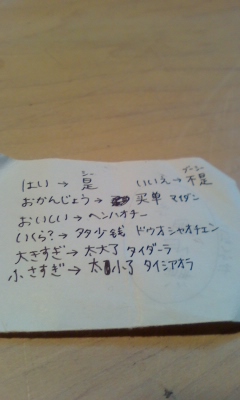 はい → 是 シー いいえ → 不是 ブーシー
おかんじょう → 买单 マイダン
おいしい → ヘンハオチー
いくら? → 多少钱 ドウオシャオチェン
大きすぎ → 太大了 タイダーラ
小さすぎ → 太小了 タイシアオラ